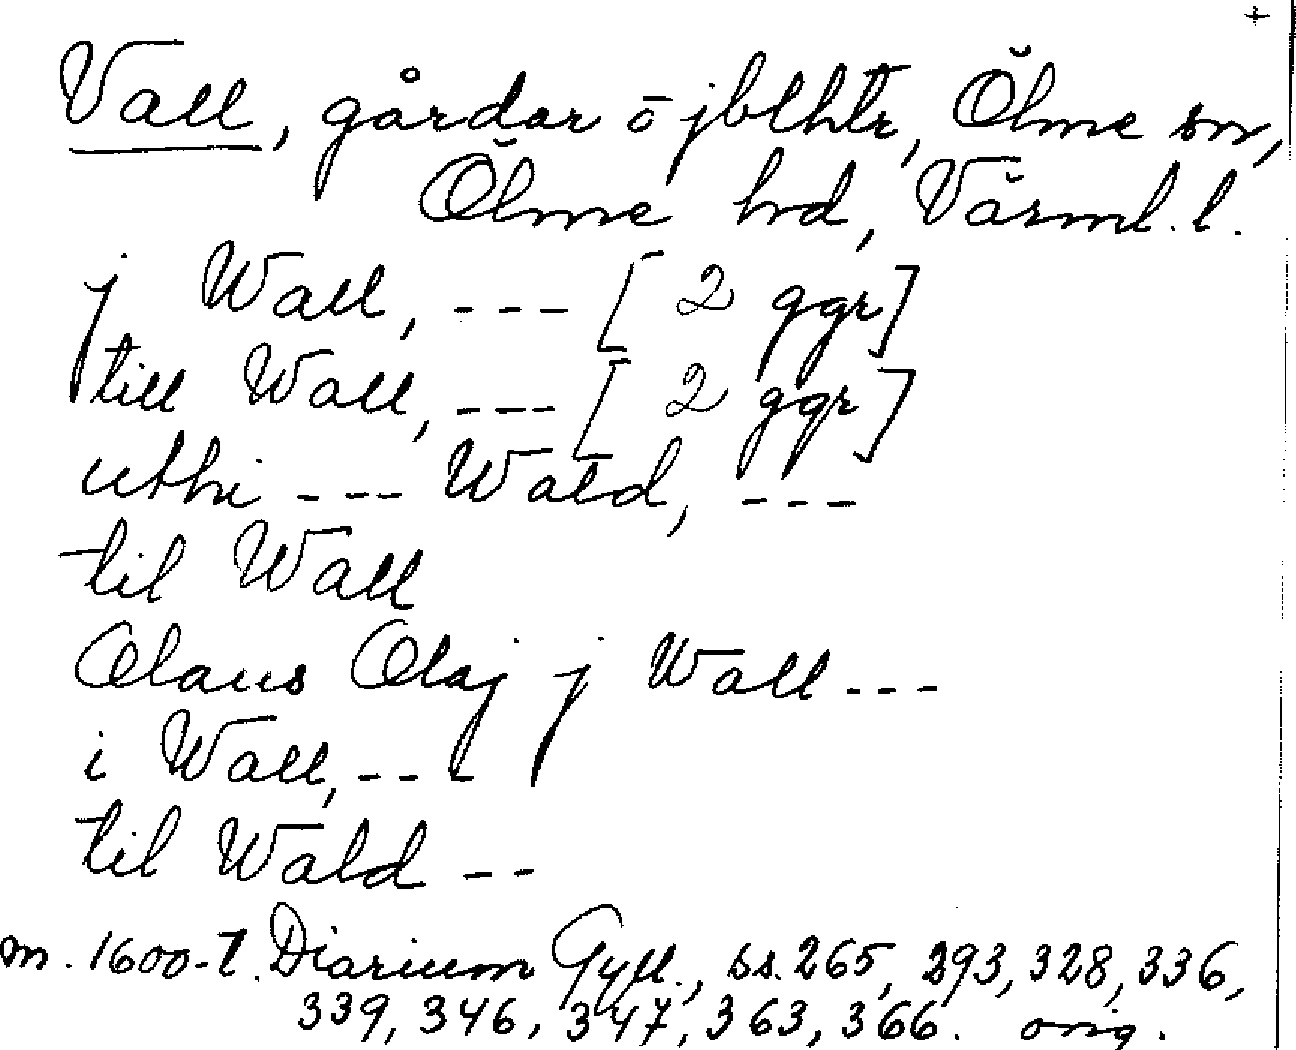 +
Vall, gårdar o jblhtr, Ölme sn,
Ölme hd, Värml. l.
j Wall, --- [ 2 ggr]
till Wall, --- [ 2 ggr]
uthi --- Wald, ---
til Wall
Olaus Olaj j Wall ---
i Wall, ---
til Wald --
m. 1600-t. Diarium Gyll., ss. 265, 293, 328, 336,
339, 346, 347, 363, 366. orig.